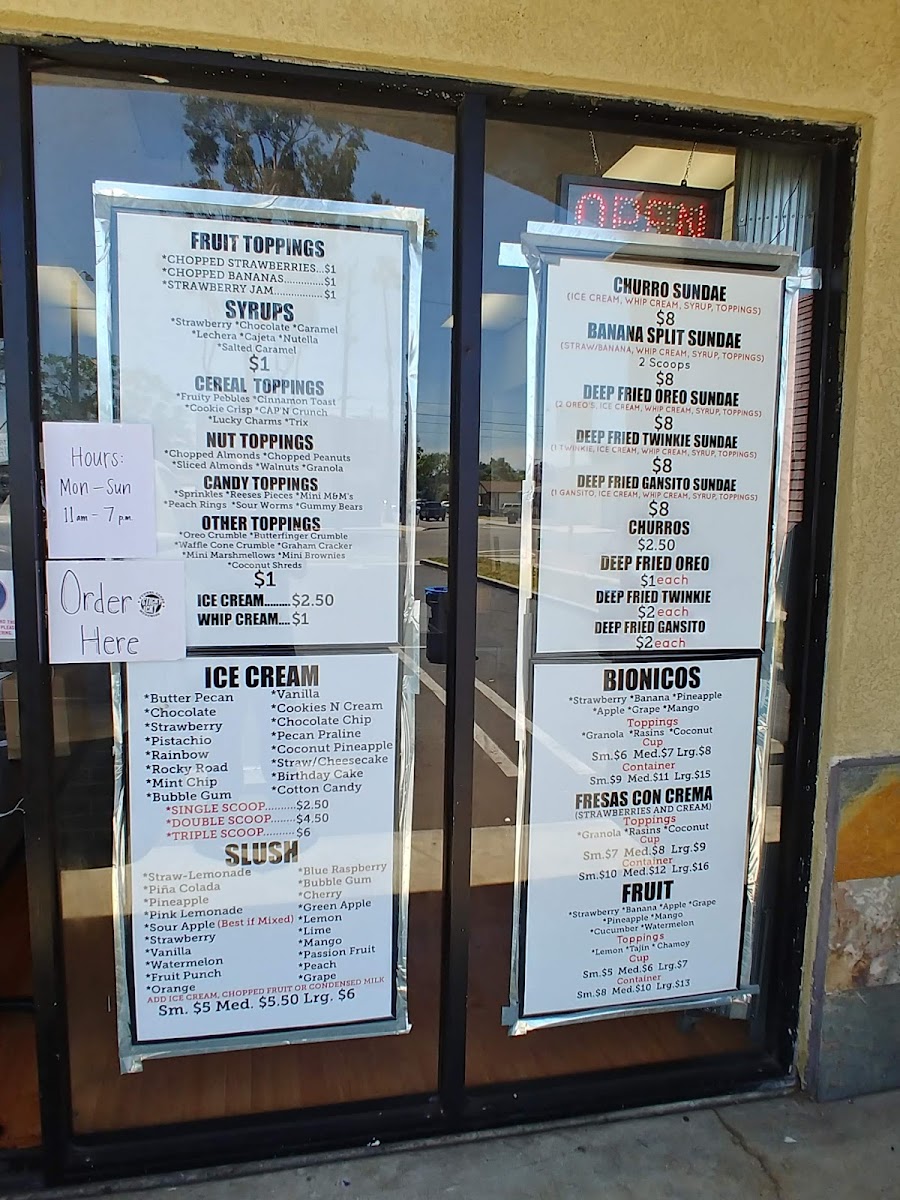 OPEN
FRUIT TOPPINGS
*CHOPPED STRAWBERRIES...$1
*CHOPPED BANANAS..............$1
*STRAWBERRY JAM................$1
SYRUPS
*Strawberry *Chocolate *Caramel
*Lechera *Cajeta *Nutella
*Salted Caramel
$1
CEREAL TOPPINGS
*Fruity Pebbles *Cinnamon Toast
*Cookie Crisp *CAP'N Crunch
*Lucky Charms *Trix
NUT TOPPINGS
*Chopped Almonds *Chopped Peanuts
*Sliced Almonds *Walnuts *Granola
CANDY TOPPINGS
*Sprinkles *Reeses Pieces *Mini M&M's
*Peach Rings *Sour Worms *Gummy Bears
OTHER TOPPINGS
*Oreo Crumble *Butterfinger Crumble
*Waffle Cone Crumble *Graham Cracker
*Mini Marshmellows *Mini Brownies
*Coconut Shreds
$1
ICE CREAM.........$2.50
WHIP CREAM....$1
Hours:
Mon - Sun
11am - 7pm
Order
Here
ICE CREAM
*Butter Pecan
*Chocolate
*Strawberry
*Pistachio
*Rainbow
*Rocky Road
*Mint Chip
*Bubble Gum
*Vanilla
*Cookies N Cream
*Chocolate Chip
*Pecan Praline
*Coconut Pineapple
*Straw/Cheesecake
*Birthday Cake
*Cotton Candy
*SINGLE SCOOP..........$2.50
*DOUBLE SCOOP.........$4.50
*TRIPLE SCOOP..........$6
SLUSH
*Straw-Lemonade
*Piña Colada
*Pineapple
*Pink Lemonade
*Sour Apple (Best if Mixed)
*Strawberry
*Vanilla
*Watermelon
*Fruit Punch
*Orange
*Blue Raspberry
*Bubble Gum
*Cherry
*Green Apple
*Lemon
*Lime
*Mango
*Passion Fruit
*Peach
*Grape
ADD ICE CREAM, CHOPPED FRUIT OR CONDENSED MILK
Sm. $5 Med. $5.50 Lrg. $6
CHURRO SUNDAE
(ICE CREAM, WHIP CREAM, SYRUP, TOPPINGS)
$8
BANANA SPLIT SUNDAE
(STRAW/BANANA, WHIP CREAM, SYRUP, TOPPINGS)
2 Scoops
$8
DEEP FRIED OREO SUNDAE
(2 OREO'S, ICE CREAM, WHIP CREAM, SYRUP, TOPPINGS)
$8
DEEP FRIED TWINKIE SUNDAE
(1 TWINKIE, ICE CREAM, WHIP CREAM, SYRUP, TOPPINGS)
$8
DEEP FRIED GANSITO SUNDAE
(1 GANSITO, ICE CREAM, WHIP CREAM, SYRUP, TOPPINGS)
$8
CHURROS
$2.50
DEEP FRIED OREO
$1each
DEEP FRIED TWINKIE
$2each
DEEP FRIED GANSITO
$2each
BIONICOS
*Strawberry *Banana *Pineapple
*Apple *Grape *Mango
Toppings
*Granola *Rasins *Coconut
Cup
Sm.$6 Med.$7 Lrg.$8
Container
Sm.$9 Med.$11 Lrg.$15
FRESAS CON CREMA
(STRAWBERRIES AND CREAM)
Toppings
*Granola *Rasins *Coconut
Cup
Sm.$7 Med.$8 Lrg.$9
Container
Sm.$10 Med.$12 Lrg.$16
FRUIT
*Strawberry *Banana *Apple *Grape
*Pineapple *Mango
*Cucumber *Watermelon
Toppings
*Lemon *Tajin *Chamoy
Cup
Sm.$5 Med.$6 Lrg.$7
Container
Sm.$8 Med.$10 Lrg.$13